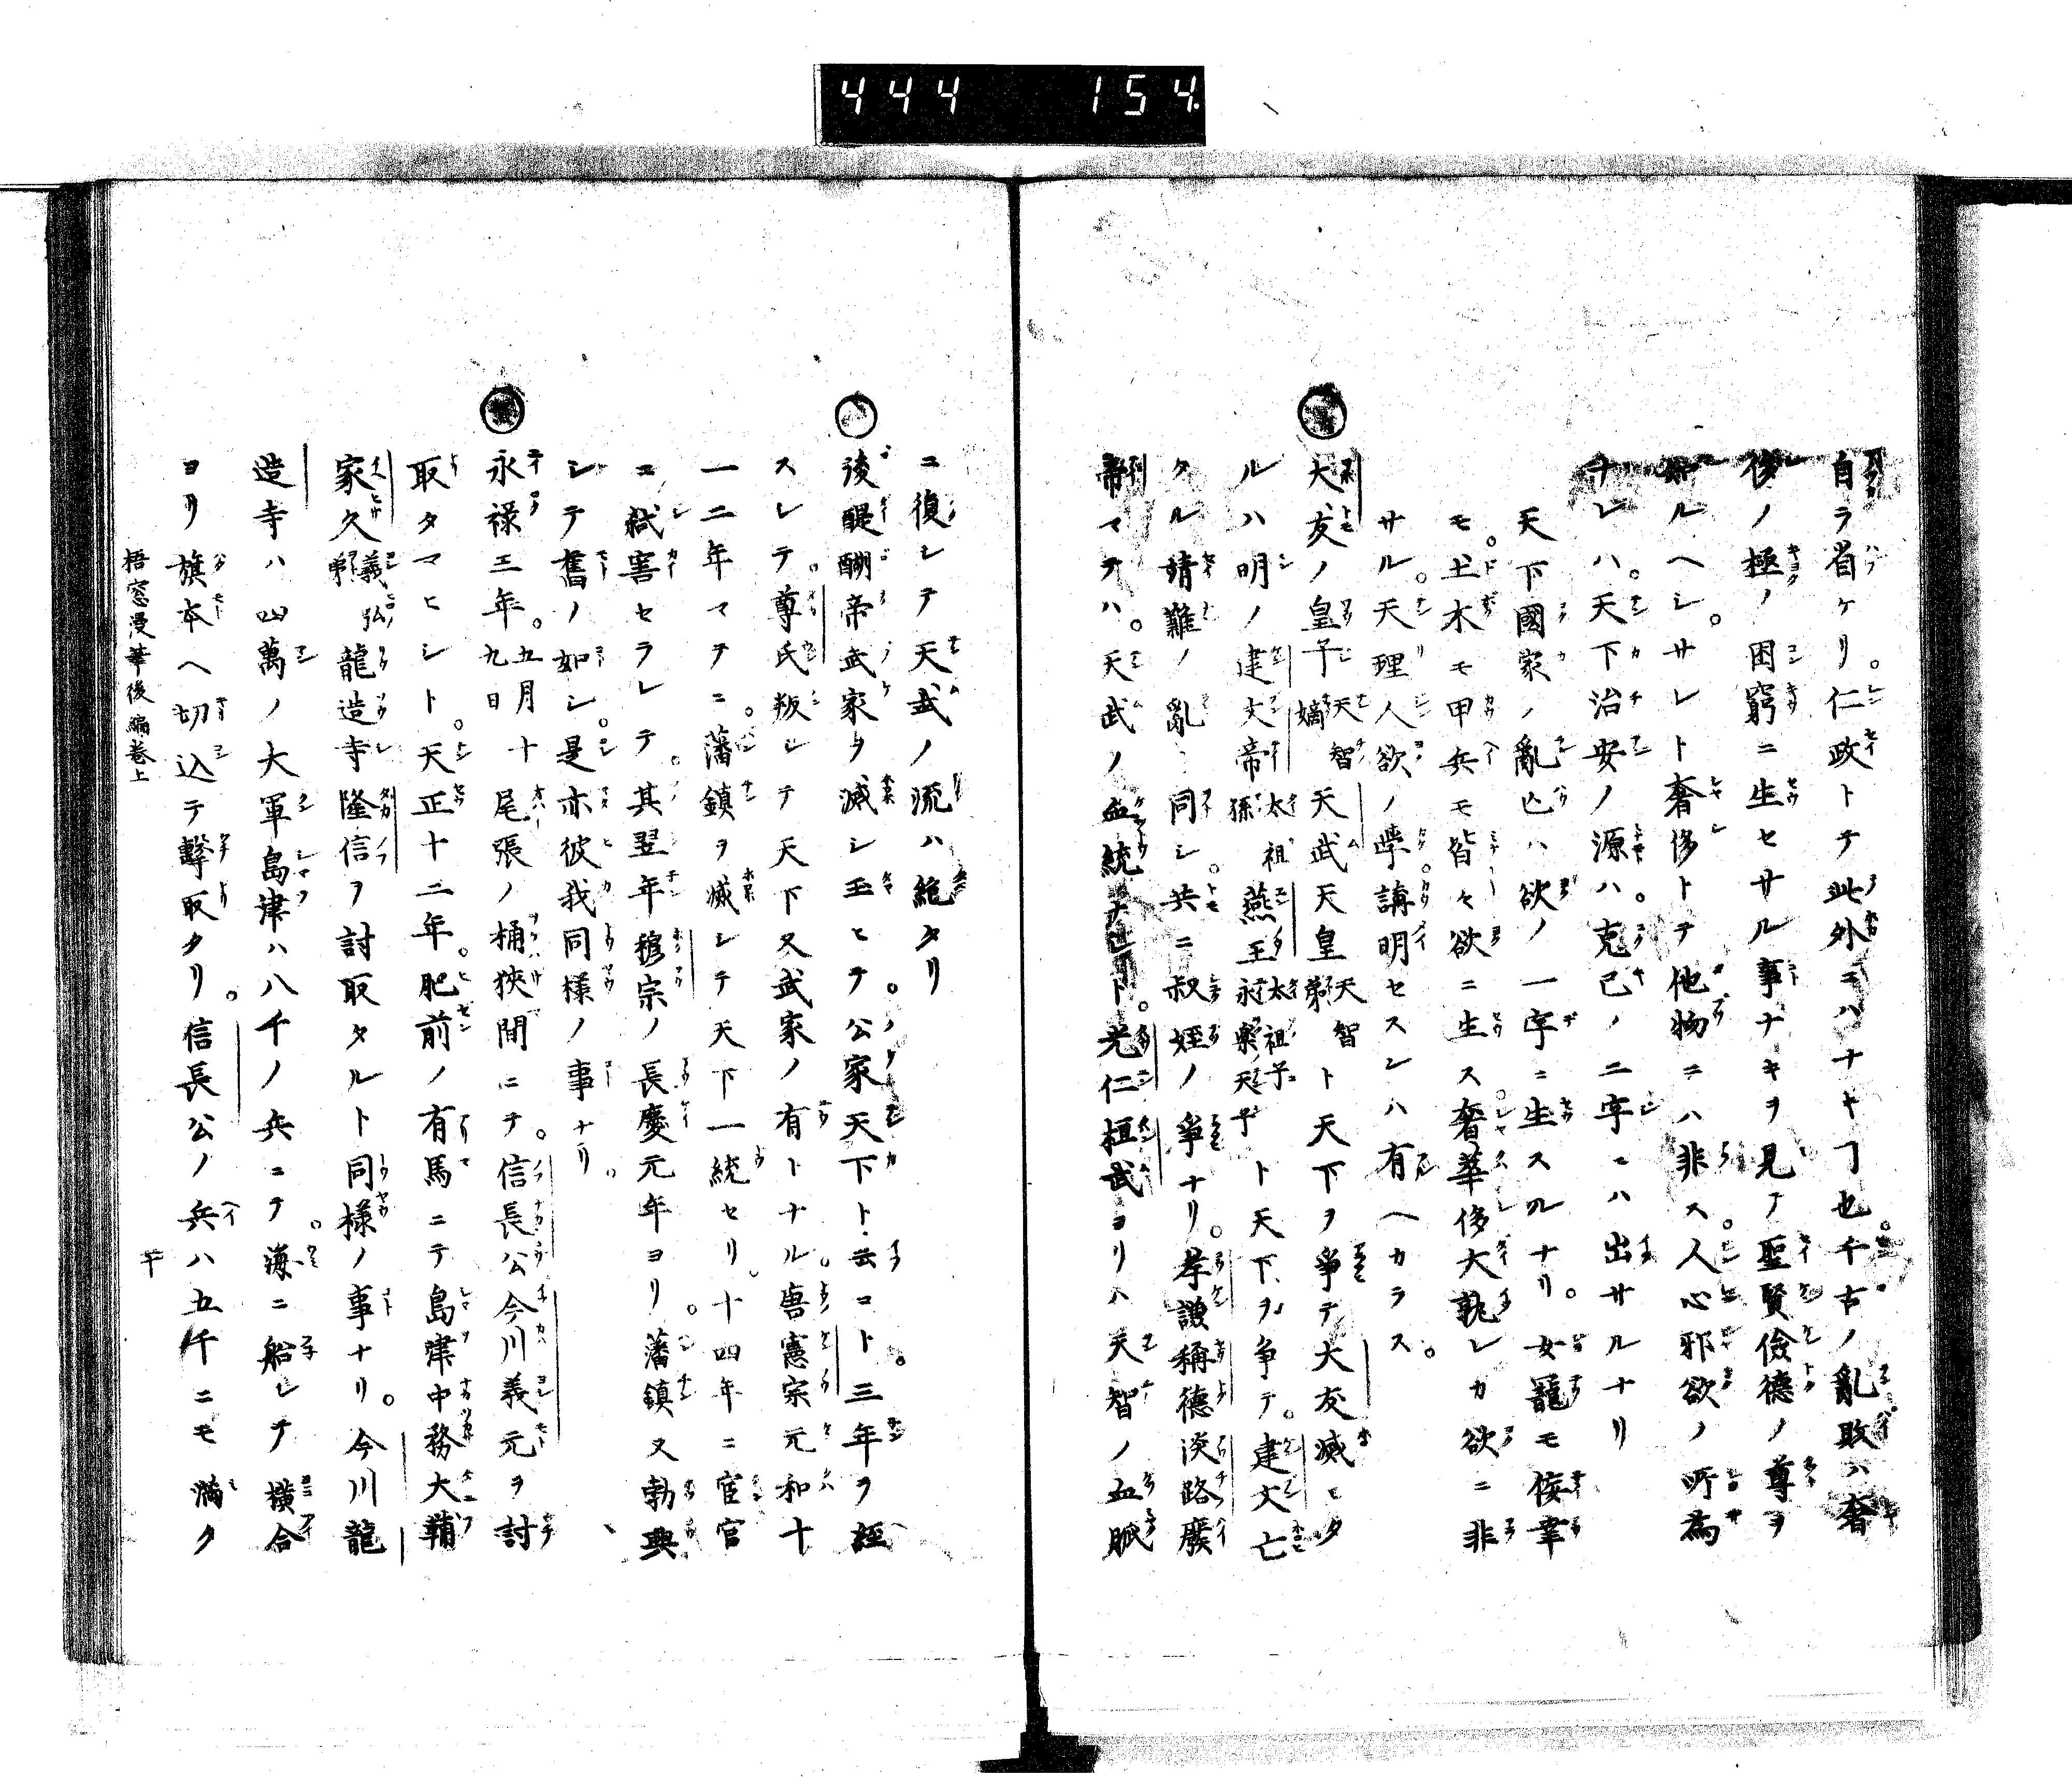 444 154
自ラ省ケリ。仁政トテ此外ニハナキヿ也。千古ノ亂敗ハ奢
侈ノ極ノ困窮ニ生セサル事ナキヲ見テ聖賢儉德ノ尊ヲ
知ルヘシ。サレト奢侈トテ他物ニハ非ス。人心邪欲ノ所為
ナレハ。天下治安ノ源ハ。克己ノ二字ニハ出サルナリ
天下國家ノ亂亡ハ欲ノ一字ニ生スルナリ。女寵モ倿幸
モ。土木モ甲兵モ皆々欲ニ生ス。奢華侈大孰レカ欲ニ非
サル。天理人欲ノ學講明セスンハ有ヘカラス。
大友ノ皇子天智嫡天武天皇天智弟ト天下ヲ爭テ大友滅ヒタ
ルハ明ノ建文帝太祖孫燕王太祖子永樂天子ト天下ヲ争テ。建文亡
タル靖難ノ亂ニ同シ。共ニ叔姪ノ爭ナリ。孝謙稱德淡路廢
帝マテハ。天武ノ血統ナレト。光仁桓武ヨリハ天智ノ血脈
ニ復シテ天武ノ流ハ絶タリ
後醍醐帝武家ヲ滅シ玉ヒテ。公家天下ト云コト。三年ヲ経
スレテ。尊氏叛シテ天下又武家ノ有トナル。唐憲宗元和十
一二年マテニ。藩鎮ヲ滅シテ天下一統セリ。十四年ニ宦官
ニ弑害セラレテ。其翌年穆宗ノ長慶元年ヨリ。藩鎮又勃興
シテ舊ノ如シ。是亦彼我同様ノ事ナリ。
永祿三年。五月十九日尾張ノ桶狹間ニテ。信長公今川義元ヲ討
取タマヒシト。天正十二年。肥前ノ有馬ニテ島津中務大輔
家久義弘弟龍造寺隆信ヲ討取タルト同様ノ事ナリ。今川龍
造寺ハ四萬ノ大軍島津ハ八千ノ兵ニテ。海ニ船シテ横合
ヨリ旗本ヘ切込テ擊取タリ。信長公ノ兵ハ五千ニモ滿タ
梧窓漫筆後編巻上